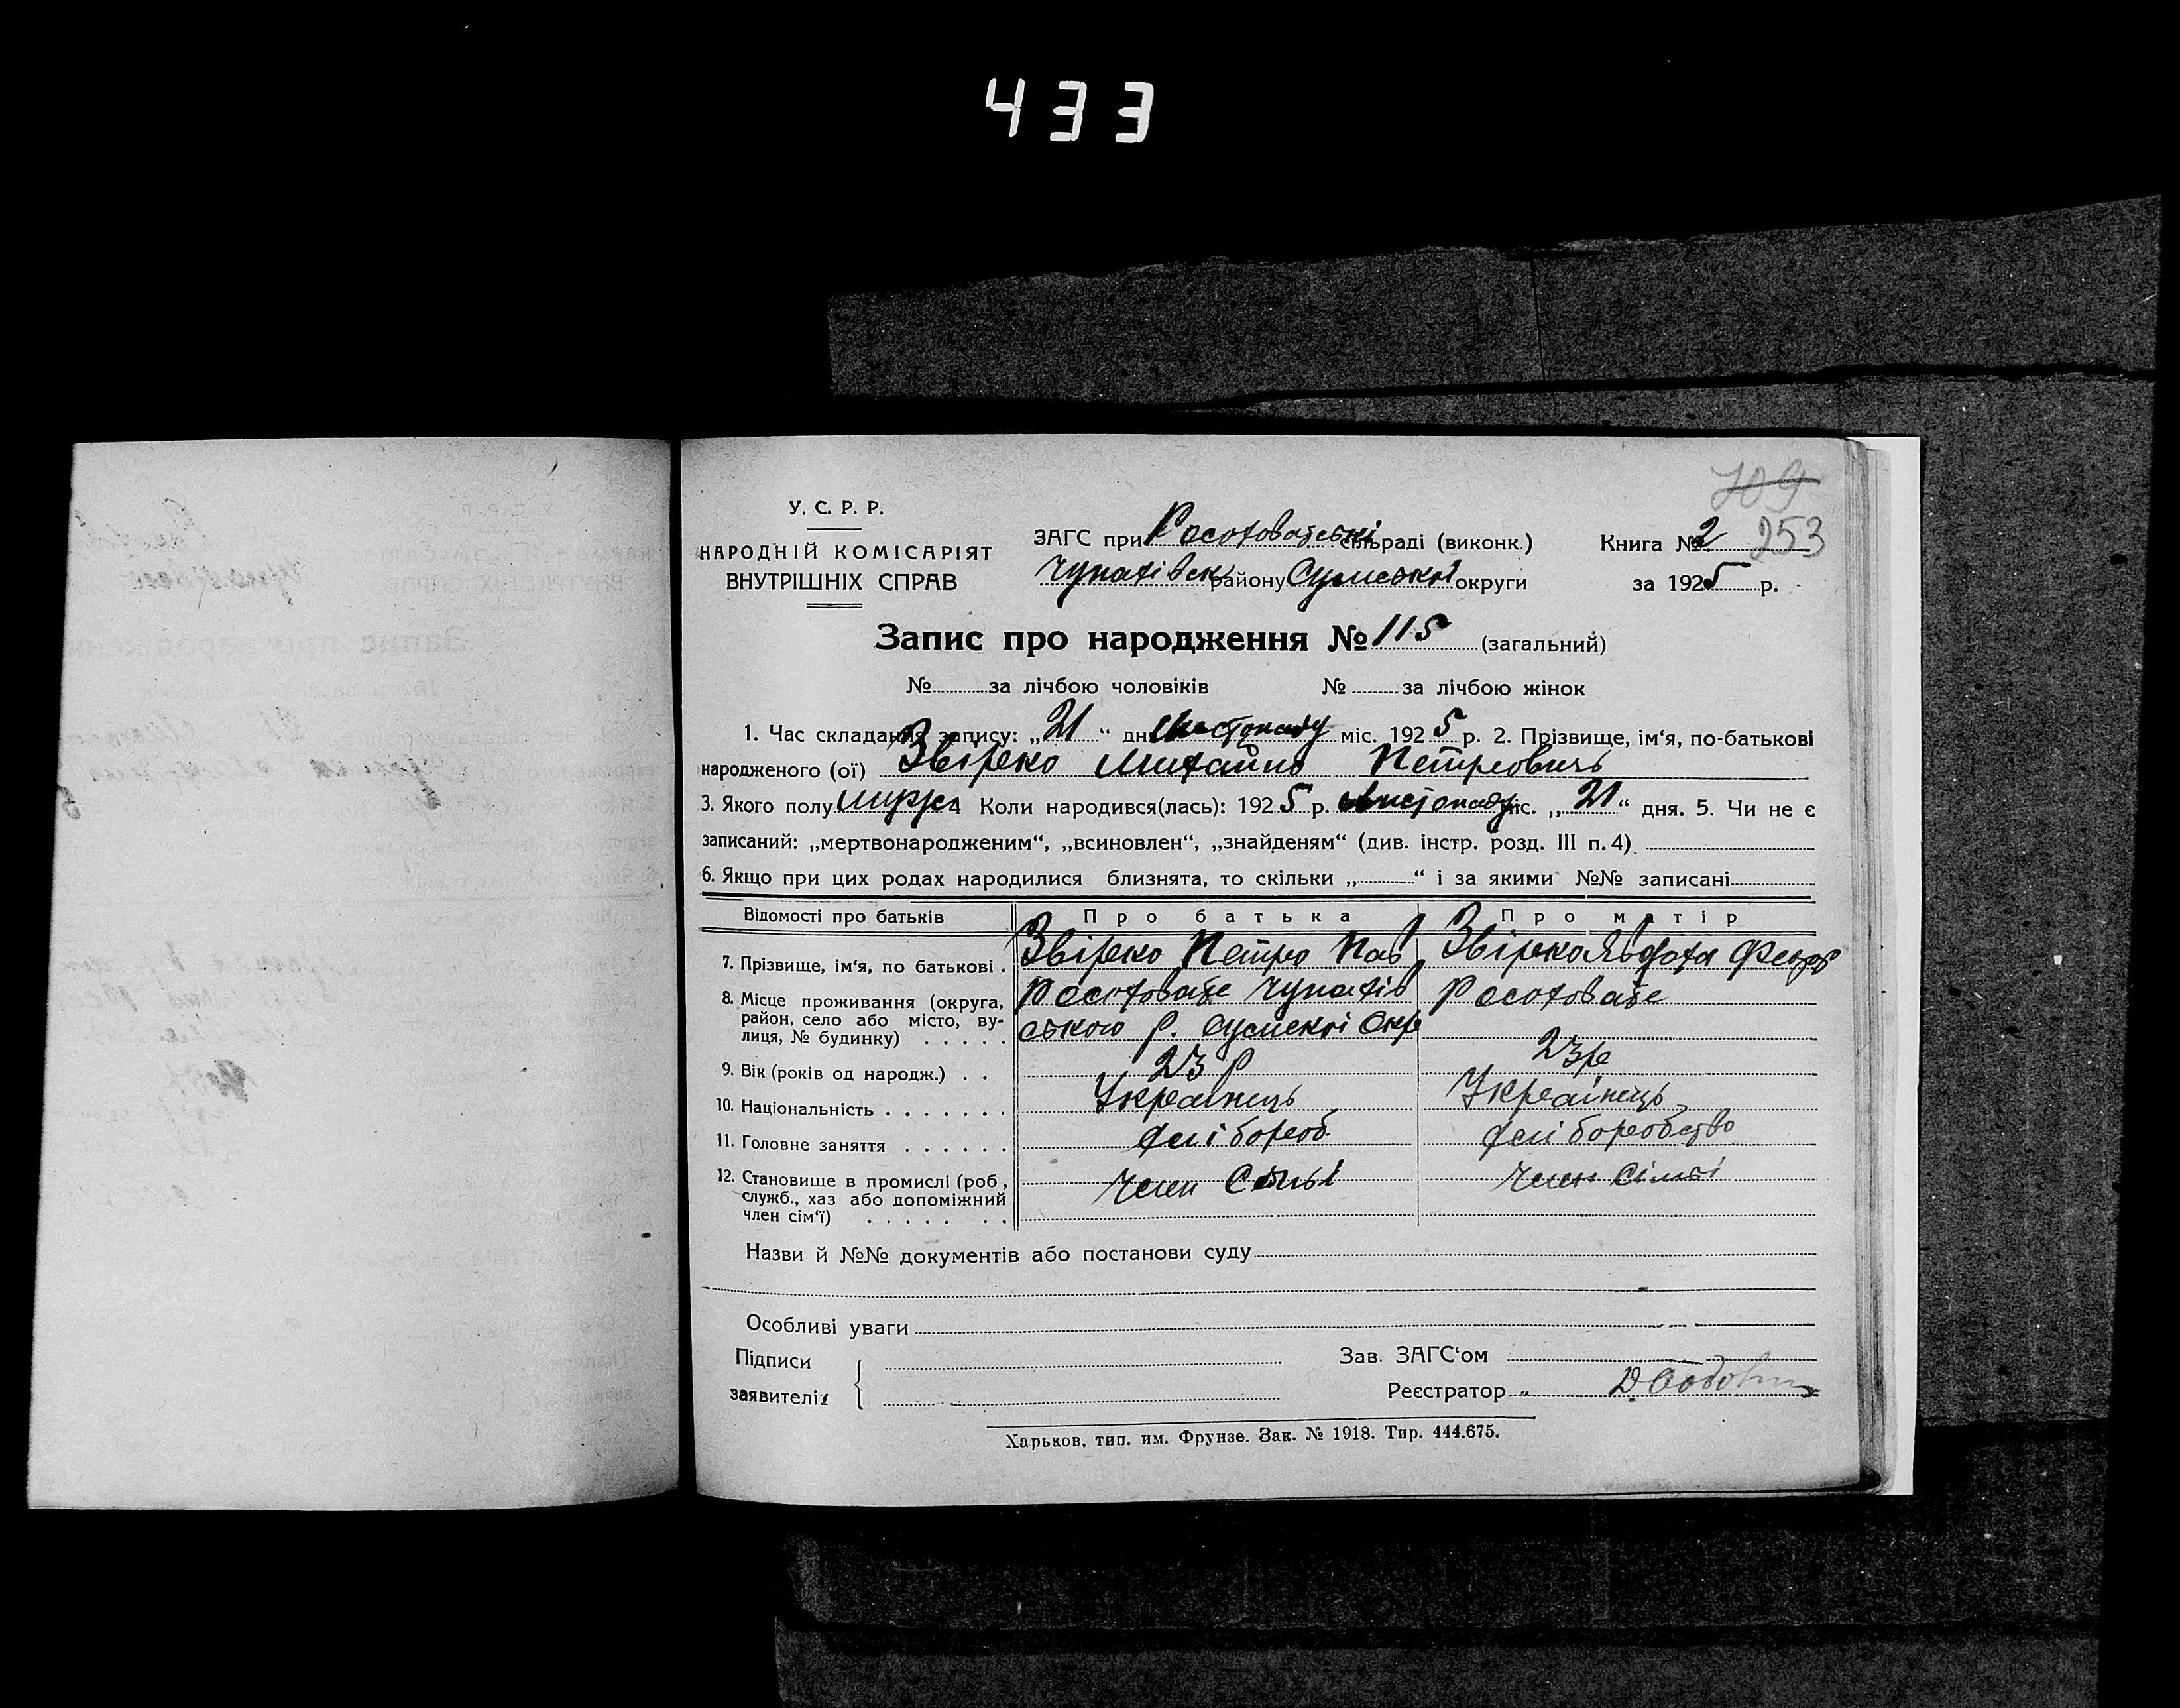 433
709
253
У. С. Р. Р.
НАРОДНІЙ КОМІСАРІЯТ
ВНУТРІШНІХ СПРАВ
ЗАГС при Росоховатські сільраді (виконк.)
Чупахівск району Сумської округи
Книга № 2
за 1925 р.
Запис про народження № 115 (загальний)
№ за лічбою чоловіків № за лічбою жінок
1. Час складання запису: „21“ дня листопаду міс. 1925 р. 2. Прізвище, ім‘я, по-батькові
народженого (ої) Звіреко Михайло Петрович
3. Якого полу 4 Коли народився(лась): 1925 р. листопаду міс. „21“ дня. 5. Чи не є
записаний: „мертвонародженим“, „всиновлен“, „знайденям“ (див. інстр. розд. III п. 4)
6. Якщо при цих родах народилися близнята, то скільки „ “ і за якими №№ записані
Відомості про батьків Про батька Про матір
7. Прізвище, ім‘я, по батькові . Звіреко Петро Пав Звіреко Явдоха Федор
8. Місце проживання (округа, район, село або місто, вулиця, № будинку) . . . . . Росоховате Чупахів Росоховате
ського р. Сумскої Окр
9. Вік (років од народж.) . . 23 р 23 р
10. Національність . . . . . . . Украінець Украінець
11. Головне заняття . . . . . . хлібороб хліборобство
12. Становище в промислі (роб., служб., хаз або допоміжний член сім‘ї) . . . . . . . Член Сімьі Член Сімьі
Назви й №№ документів або постанови суду
Особливі уваги
Підписи
заявителів
Зав. ЗАГС‘ом
Реєстратор
Харьков, тип. им. Фрунзе. Зак. № 1918. Тир. 444.675.